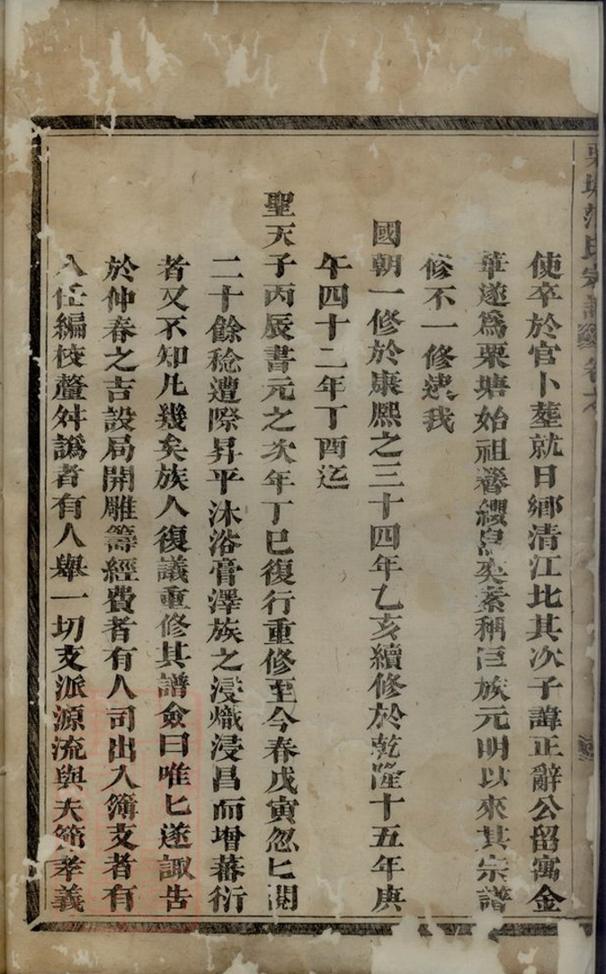 使卒於官卜塟就日鄉清江比其次子諱正辭公留寓金
華遂爲栗塘始祖簪纓奕奕素稱巨族元明以來其宗譜
修不一修迭我
國朝一修於康熙之三十四年乙亥續修於乾隆十五年庚
午四十二年丁酉迄
聖天子丙辰書元之次年丁巳復行重修至今春戊寅忽匕閱
二十餘稔遭際昇平沐浴膏澤族之浸熾浸昌而增蕃衍
者又不知凡幾矣族人復議重修其譜僉曰唯匕遂諏吉
於仲春之吉設局開雕籌經費者有人司出入簿支者有
人任編校釐舛譌者有人舉一切支派源流與夫節孝義